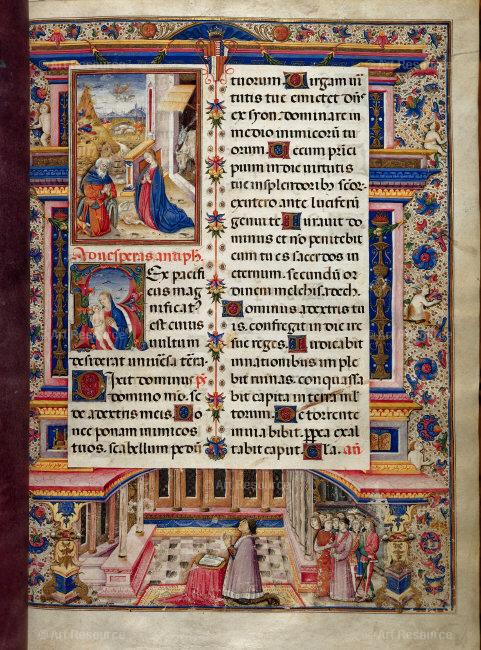 Ad vesperas antiph.
Rex pacifi
cus mag
nificat9
est cuius
vultum
desiderat universa terra.
Dixit dominus ps
domino meo. se
de a dextris meis. Do
nec ponam inimicos
tuos. scabellum pedu
tuorum. Virgam vir
tutis tue emictet dne
ex syon. dominare in
medio inimicoru tu
orum. Tecum princi
pium in die virtutis
tue in splendorib9 scor.
ex utero ante luciferu
genui te. Iuravit do
minus et no penitebit
eum tu es sacerdos in
eternum. secundu or
dinem melchisadech.
Dominus a dextris tu
is. confregit in die ire
sue reges. Iudicabit
in nationibus implē
bit ruinas. conquassa
bit capita in terra mul
torum. De torrente
in via bibit. ppea exal
tabit caput. Gla. an
© Art Resource
© Art Resource